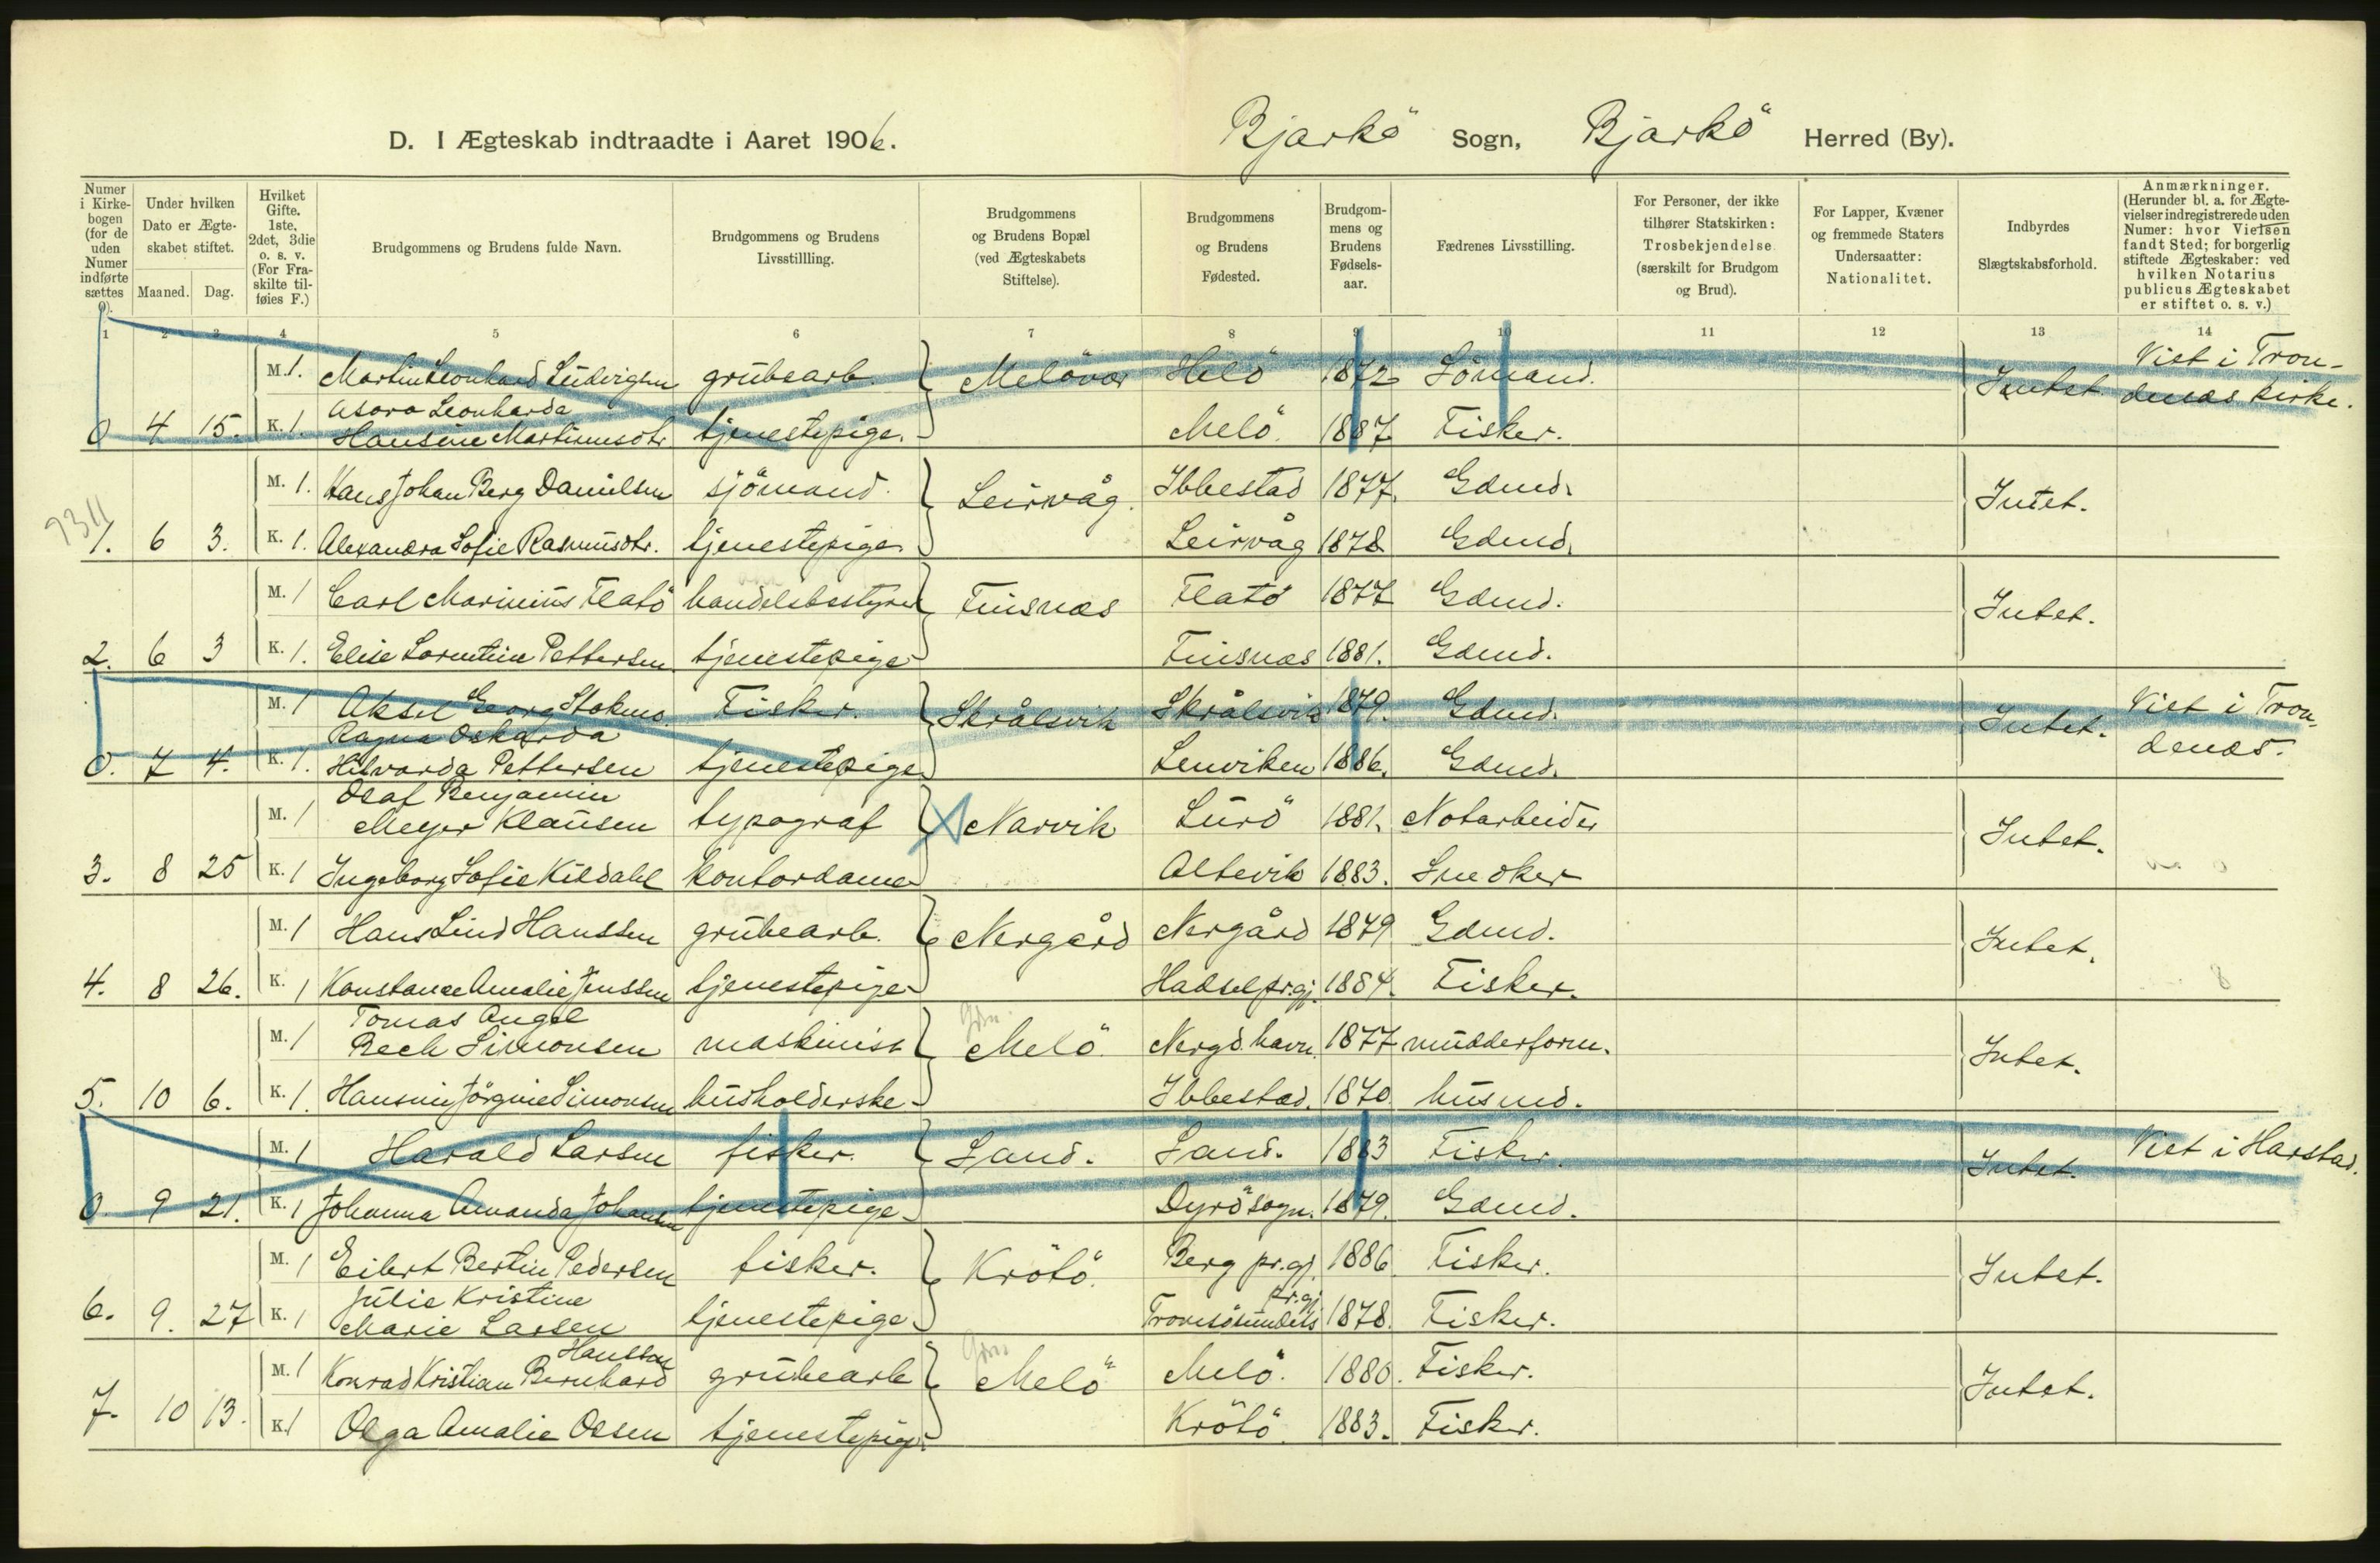 D. I Ægteskab indtraadte i Aaret 1906. Bjarkö Sogn, Bjarkö Herred (By).
Numer i Kirkebogen (for de uden Numer indførte sættes 0).
Under hvilken Dato er Ægteskabet stiftet.
Maaned. Dag.
Hvilket Gifte. 1ste, 2det, 3die o. s. v. (For Fraskilte tilføies F.)
Brudgommens og Brudens fulde Navn.
Brudgommens og Brudens Livsstillling.
Brudgommens og Brudens Bopæl (ved Ægteskabets Stiftelse).
Brudgommens og Brudens Fødested.
Brudgommens og Brudens Fødselsaar.
Fædrenes Livsstilling.
For Personer, der ikke tilhører Statskirken: Trosbekjendelse (særskilt for Brudgom og Brud).
For Lapper, Kvæner og fremmede Staters Undersaatter: Nationalitet.
Indbyrdes Slægtskabsforhold.
Anmærkninger. (Herunder bl. a. for Ægtevielser indregistrerede uden Numer: hvor Vielsen fandt Sted; for borgerlig stiftede Ægteskaber: ved hvilken Notarius publicus Ægteskabet er stiftet o. s. v.)
1 2 3 4 5 6 7 8 9 10 11 12 13 14
M. 1. Martin Leonhard Ludvigsen grubearb. Melövær Helö 1872 Sömand. Intet. Viet i Trondenæs kirke.
0 4 15. K. 1. Asora Leonharda Hansine Martinusdtr. tjenestepige. Melö. 1887 Fisker.
M. 1. Hans Johan Berg Danielsen sjömand. Leirvåg. Ibbestad 1877. Gdmd. Intet.
1. 6 3. K. 1. Alexandra Sofie Rasmusdtr. tjenestepige. Leirvåg 1878 Gdmd.
M. 1 Carl Marinius Flatö handelsbestyrer Finsnæs Flatö 1877 Gdmd. Intet.
2. 6 3 K. 1. Elise Lorntine Pettersen tjenestepige Finsnæs 1881. Gdmd.
M. 1 Aksel Georg Stokmo. Fisker. Skrålsvik Skrålsvik 1879. Gdmd. Intet. Viet i Trondenæs.
0. 7 4. K. 1. Ragna Oskarda Hilvarda Pettersen tjenestepige Lenviken 1886. Gdmd.
M. 1 Olaf Benjamin Meyer Klausen typograf Narvik Lurö 1881. Notarbeider Intet.
3. 8 25 K. 1 Ingeborg Sofie Kildahl kontordame Altevik 1883. Snedker
M. 1 Hans Lind Hanssen grubearb. Nergård Nergård 1879 Gdmd. Intet.
4. 8 26. K. 1 Konstanse Amalie Jenssen tjenestepige Hadsel pr.gj. 1884. Fisker.
M. 1 Tomas Angel Bech Simonsen maskinist Melö. Nergd.havn. 1877 mudderform. Intet.
5. 10 6. K. 1. Hansine Jörgine Simonsen husholderske Ibbestad. 1870 husmd.
M. 1 Harald Larsen fisker. Sand. Sand. 1883 Fisker. Intet. Viet i Harstad.
0 9 21. K. 1 Johanna Amanda Johansen tjenestepige Dyrö sogn. 1879. Gdmd.
M. 1 Eilert Bertin Pedersen fisker. Krötö. Berg pr.gj. 1886 Fisker. Intet.
6. 9. 27 K. 1 Julie Kristine Marie Larsen tjenestepige Tromsösundets pr.gj. 1878. Fisker.
M. 1 Konrad Kristian Bernhard Hanssen grubearb Melö Melö. 1880. Fisker. Intet.
7. 10 13. K. 1 Olga Amalie Olsen tjenestepige. Krötö. 1883. Fisker.